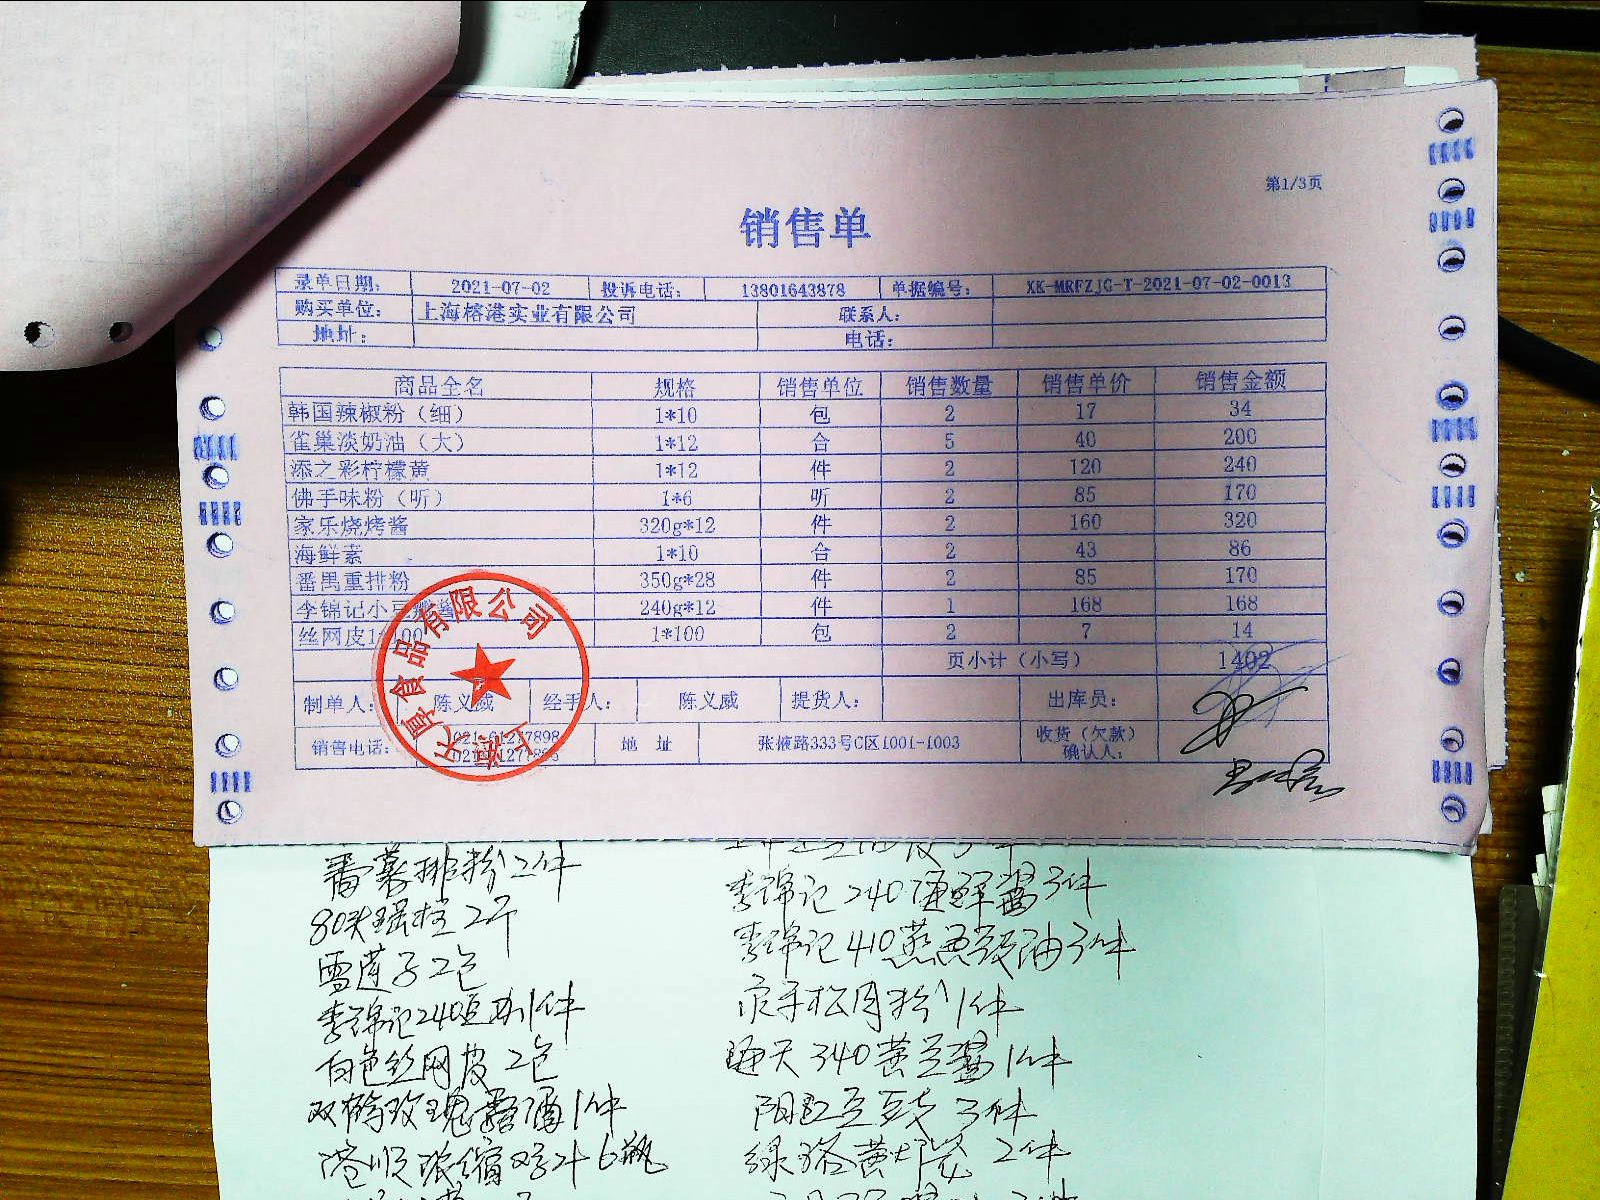 第1/3页
销售单
录单日期: 2021-07-02 投诉电话: 13801643878 单据编号: XK-MRFZJG-T-2021-07-02-0013
购买单位: 上海榕港实业有限公司 联系人:
地址: 电话:
商品全名 规格 销售单位 销售数量 销售单价 销售金额
韩国辣椒粉（细） 1*10 包 2 17 34
雀巢淡奶油（大） 1*12 合 5 40 200
添之彩柠檬黄 1*12 件 2 120 240
佛手味粉（听） 1*6 听 2 85 170
家乐烧烤酱 320g*12 件 2 160 320
海鲜素 1*10 合 2 43 86
番禺重排粉 350g*28 件 2 85 170
李锦记小豆瓣酱 240g*12 件 1 168 168
丝网皮1*100 1*100 包 2 7 14
页小计（小写） 1402
制单人: 陈义威 经手人: 陈义威 提货人: 出库员:
销售电话: 021-61277898 地 址 张掖路333号C区1001-1003 收货（欠款）
确认人:
食品有限公司
李锦记240海鲜酱3件
排粉2件
80头瑶柱2斤
李锦记410蒸鱼豉油3件
雪莲子2包
李锦记240豆瓣1件
粉1件
白色丝网皮2包
海天340黄豆酱1件
双鹤玫瑰露酒1件
阳江豆豉3件
浓缩 6瓶
2件